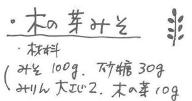 ・木の芽みそ
・材料
みそ 100g. 砂糖 30g
みりん 大さじ2. 木の芽 10g